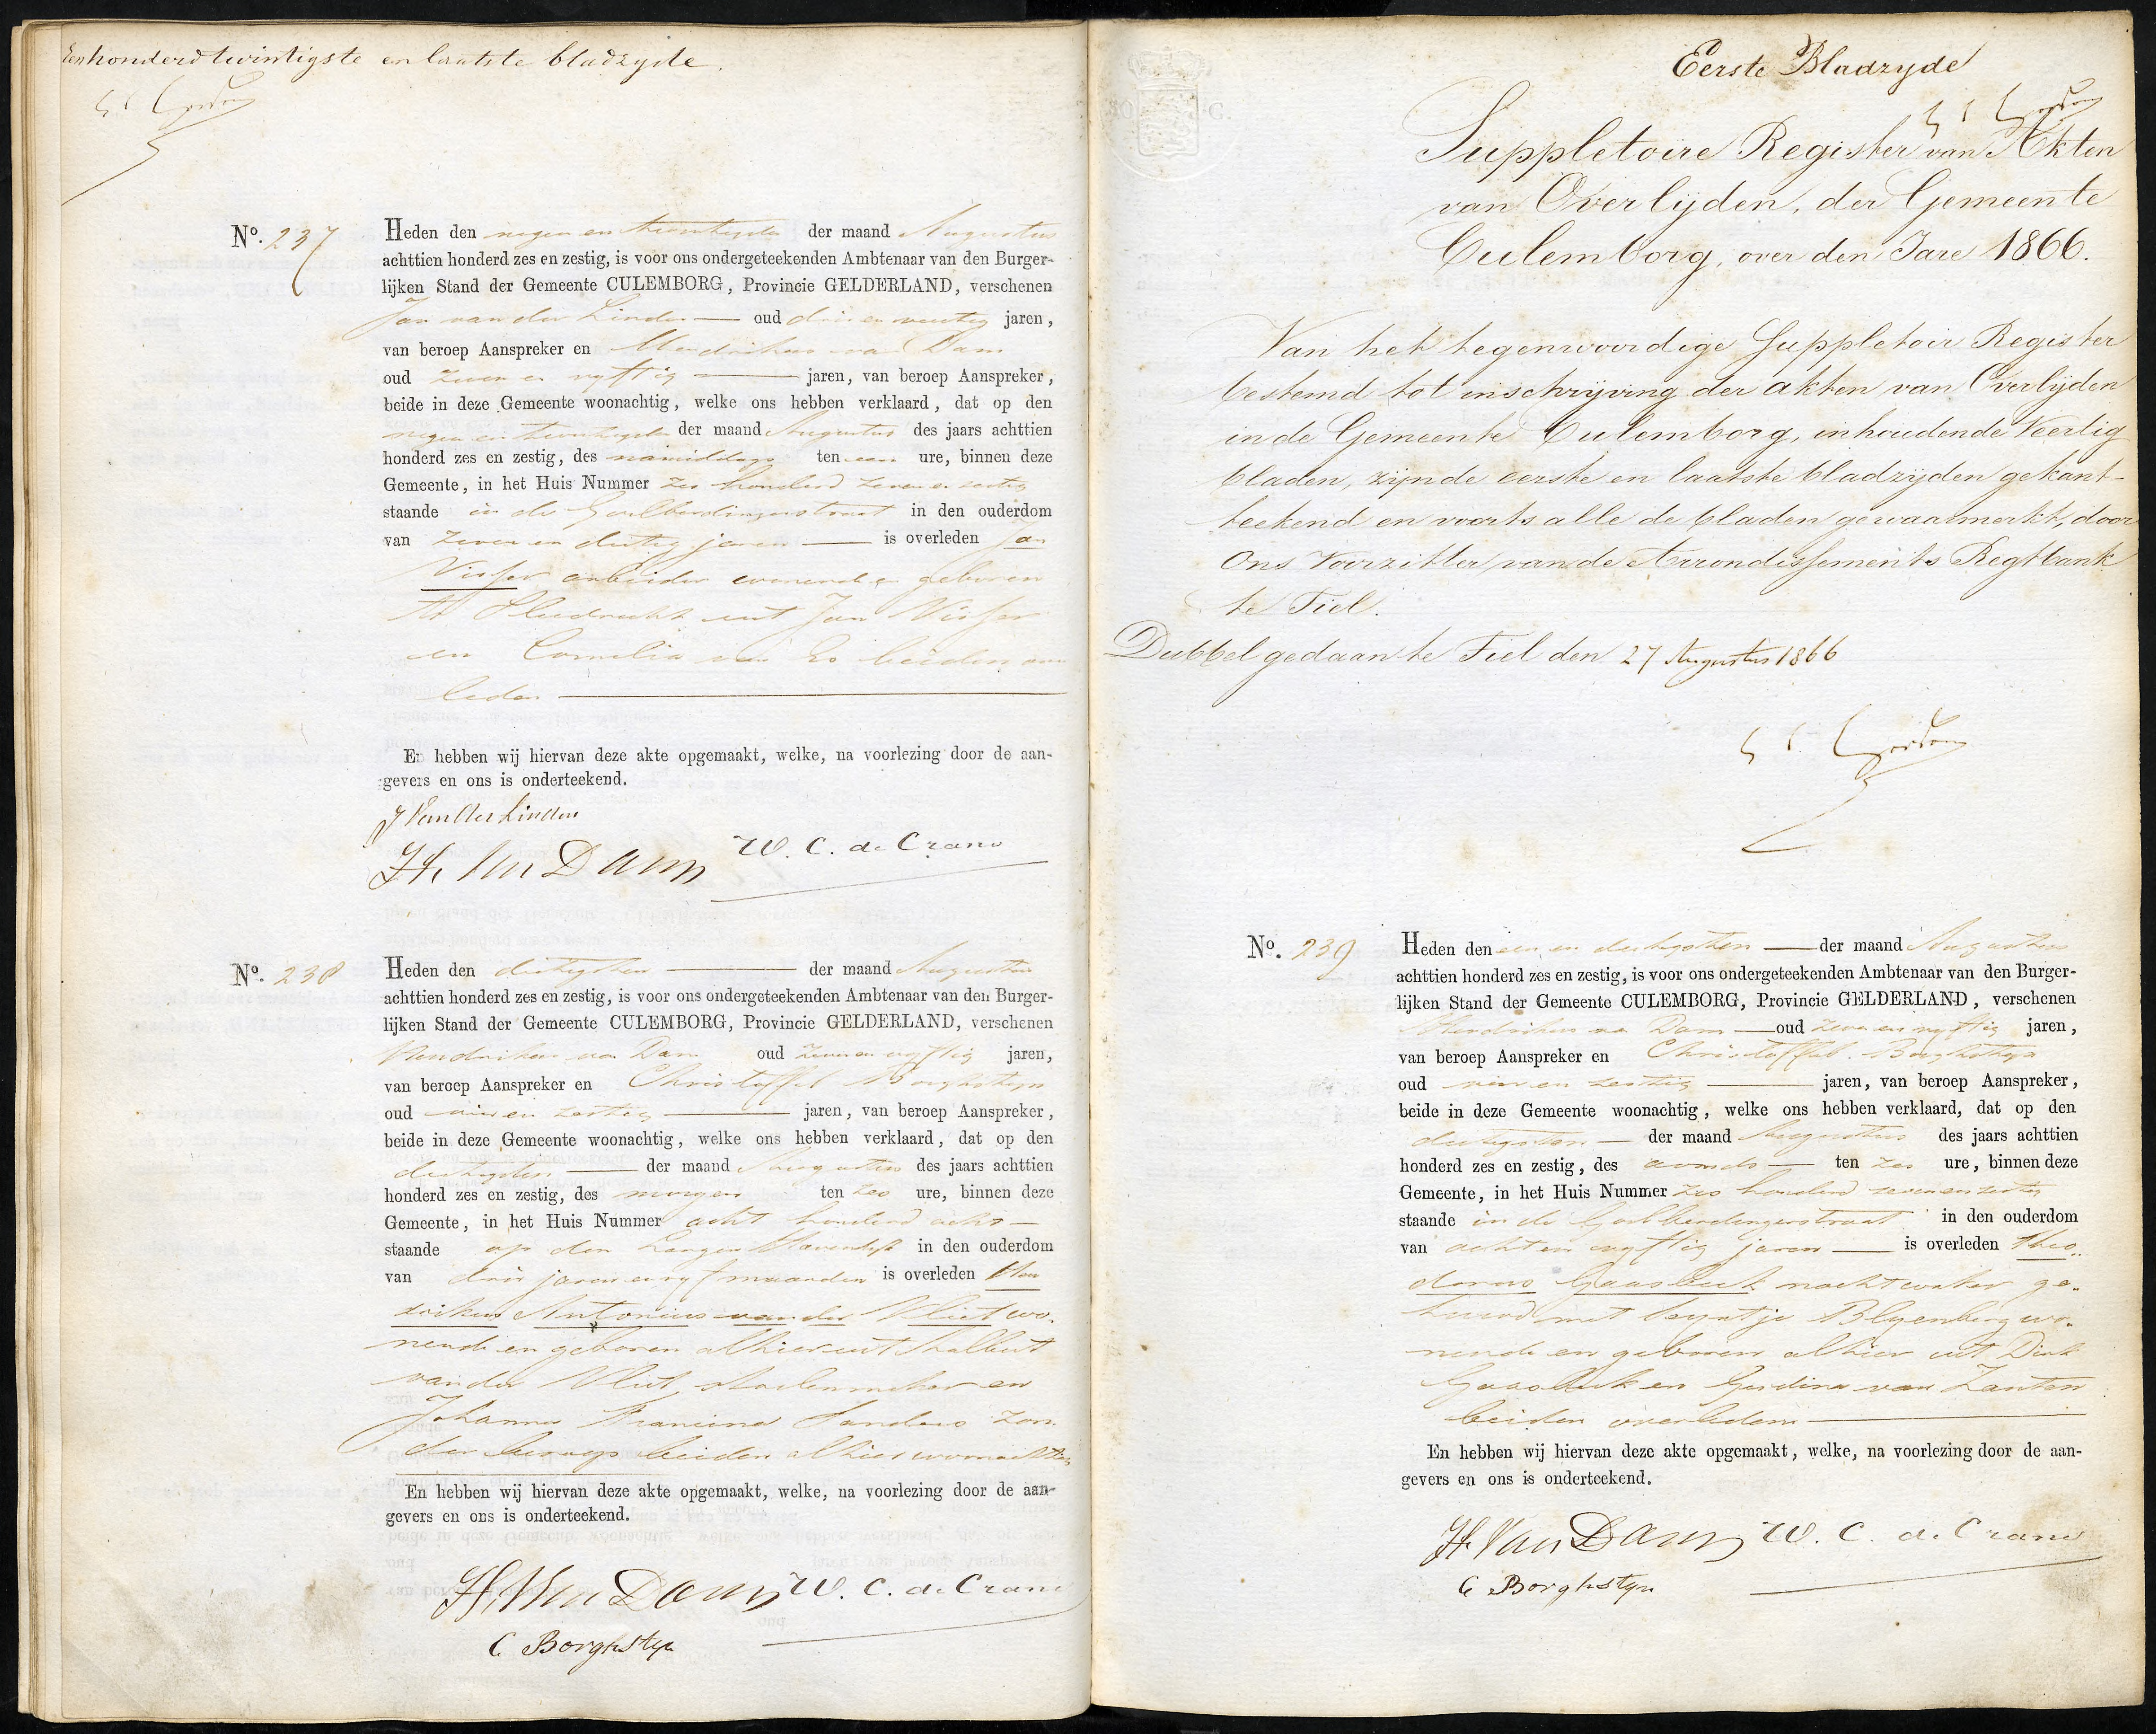 Eenhonderd twintigste en laatste bladzyde.
No. 237
Heden den negen en twintigsten der maand Augustus
achttien honderd zes en zestig, is voor ons ondergeteekenden Ambtenaar van den Burger-
lijken Stand der Gemeente CULEMBORG, Provincie GELDERLAND, verschenen
Jan van der Linden oud drie en jaren,
van beroep Aanspreker en Hendrikus van Dam
oud zeven en vyftig jaren, van beroep Aanspreker,
beide in deze Gemeente woonachtig, welke ons hebben verklaard, dat op den
negen en twintigsten der maand Augustus des jaars achttien
honderd zes en zestig, des namiddags ten een ure, binnen deze
Gemeente, in het Huis Nummer zes honderd zeven en zestig
staande in de Goilberdingerstraat in den ouderdom
van zeven en dertig jaren is overleden Jan
Visser arbeider wonende en geboren
te Sliedrecht uit Jan Visser
en Cornelia van Es beiden over
leden
En hebben wij hiervan deze akte opgemaakt, welke, na voorlezing door de aan-
gevers en ons is onderteekend.
J van der Linden
H. van Dam W. C. de Crane
No. 238
Heden den dertigsten der maand Augustus
achttien honderd zes en zestig, is voor ons ondergeteekenden Ambtenaar van den Burger-
lijken Stand der Gemeente CULEMBORG, Provincie GELDERLAND, verschenen
Hendrikus van Dam oud zeven en vyftig jaren,
van beroep Aanspreker en Christoffel Borghstyn
oud vier en zestig jaren, van beroep Aanspreker,
beide in deze Gemeente woonachtig, welke ons hebben verklaard, dat op den
dertigsten der maand Augustus des jaars achttien
honderd zes en zestig, des morgens ten zes ure, binnen deze
Gemeente, in het Huis Nummer acht honderd acht
staande op den Langen Havendyk in den ouderdom
van drie jaren en vyf maanden is overleden Hen
drikus Antonius van der Vliet wo.
nende en geboren alhier uit
van der Vliet, stoelenmaker en
Johanna Francina Sanders zon
der beroep beiden alhier woonachtig
En hebben wij hiervan deze akte opgemaakt, welke, na voorlezing door de aan-
gevers en ons is onderteekend.
H. van Dam W. C. de Crane
C Borghstyn
Eerste Bladzyde
Suppletoire Register van Akten
van Overlijden, der Gemeente
Culemborg, over den Jare 1866.
Van het tegenwoordige Suppletoir Register
bestemd tot inschrijving der akten van Overlijden
in de Gemeente Culemborg, inhoudende Veertig
bladen, zijnde eerste en laatste bladzijden gekant-
teekend en voorts alle de bladen gewaarmerkt, door
Ons Voorzitter van de Arrondissements Regtbank
te Tiel.
Dubbel gedaan te Tiel den 27 Augustus 1866
No. 239
Heden den een en dertigsten der maand Augustus
achttien honderd zes en zestig, is voor ons ondergeteekenden Ambtenaar van den Burger-
lijken Stand der Gemeente CULEMBORG, Provincie GELDERLAND, verschenen
Hendrikus van Dam oud zeven en vyftig jaren,
van beroep Aanspreker en Christoffel Borghstyn
oud vier en zestig jaren, van beroep Aanspreker,
beide in deze Gemeente woonachtig, welke ons hebben verklaard, dat op den
dertigsten der maand Augustus des jaars achttien
honderd zes en zestig, des avonds ten zes ure, binnen deze
Gemeente, in het Huis Nummer zes honderd zeven en zestig
staande in de Goilberdingerstraat in den ouderdom
van acht en vyftig jaren is overleden Theo
dorus Gaasbeek nachtwaker ge-
huwd met Blyenberg wo.
nende en geboren alhier uit Dirk
Gaasbeek en Gerdina van Zanten
beiden overleden
En hebben wij hiervan deze akte opgemaakt, welke, na voorlezing door de aan-
gevers en ons is onderteekend.
H. van Dam W. C. de Crane
C Borghstyn